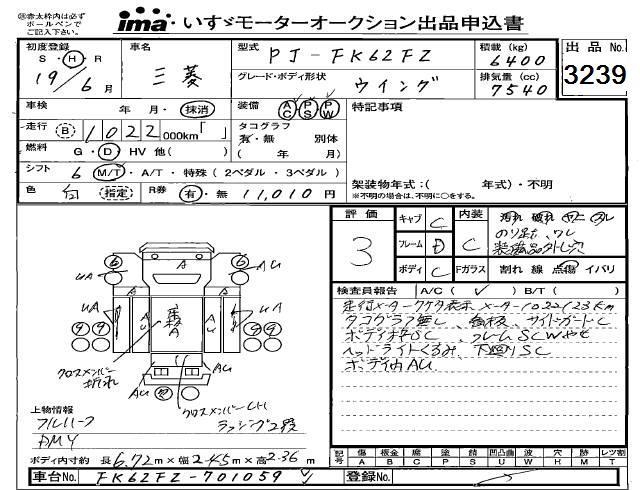 ㊟赤太枠内は必ず
ボールペンで
ご記入下さい。
ima・いすゞモーターオークション出品申込書
初度登録 車名 型式 PJ-FK62FZ 積載 (kg) 6400 出品No.
S・H・R 19/6月 三菱 グレード・ボディ形状 ウイング 排気量 (cc) 7540 3239
車検 年 月・抹消 装備 AC PS PW 特記事項
走行 B 1022,000km「 」 タコグラフ 有・無 別体
燃料 G・D・HV 他( ) ( 年 月)
シフト 6 M/T・A/T・特殊(2ペダル・3ペダル) 架装物年式:( 年式)・不明
色 白 指定 R券 有・無 11,010円 ※不明の場合は、不明に○をする。
評価 3 キャブ C 内装 C
フレーム D
ボディ C Fガラス 割れ 線 点傷 イバリ
検査員報告 A/C( ✓ ) B/T( )
走行メーターケタ表示 メーター1022123km
タコグラフ無し、サイドガードC
ボディSC、フレームSCW
ヘッドライトくもり、下廻りSC
ボディ内AU
6 A 6
UA AU
UA A UA
AU AU
クロスメンバー折れ
AU AU
クロスメンバー
上物情報
フルハーフ
DMY
ラッシング2段
ボディ内寸約 長6.72m×幅2.45m×高2.36m
記号 傷A 板金B 腐C 塗P 錆S 凹凸曲U 波W 穴H 跡M レツ割T
車台No. FK62FZ-701059 登録No.